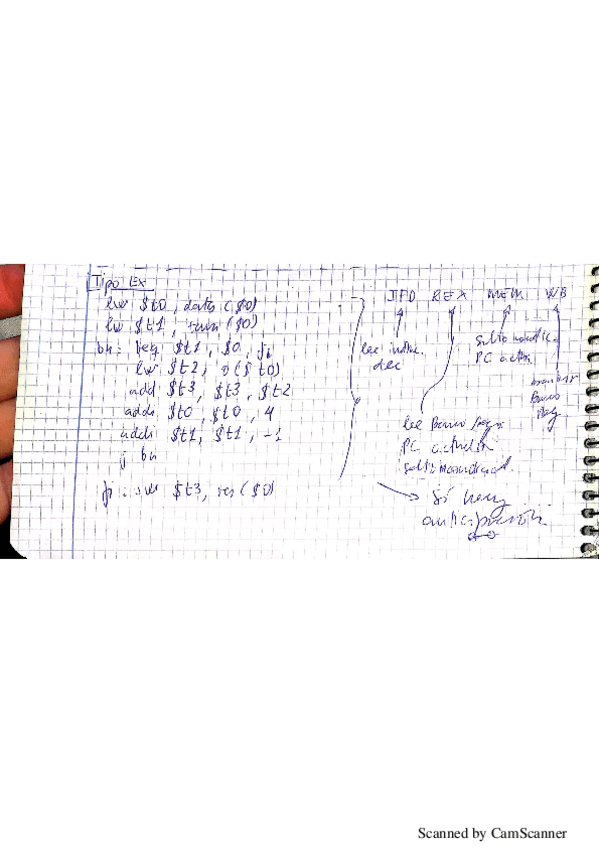 Tipo Ex
lw $t0, datos ($0)
lw $t1, ($0)
bu: beq $t1, $0, fi
lw $t2, 0($t0)
add $t3, $t3, $t2
addi $t0, $t0, 4
addi $t1, $t1, -1
j bu
fi: sw $t3, res ($0)
IFD REX MEM WB
lee
dec
salto incondic.
PC actua
Banco
Reg
lee Banco Regs
PC
salto incondicional
Si hay
anticipación
Scanned by CamScanner